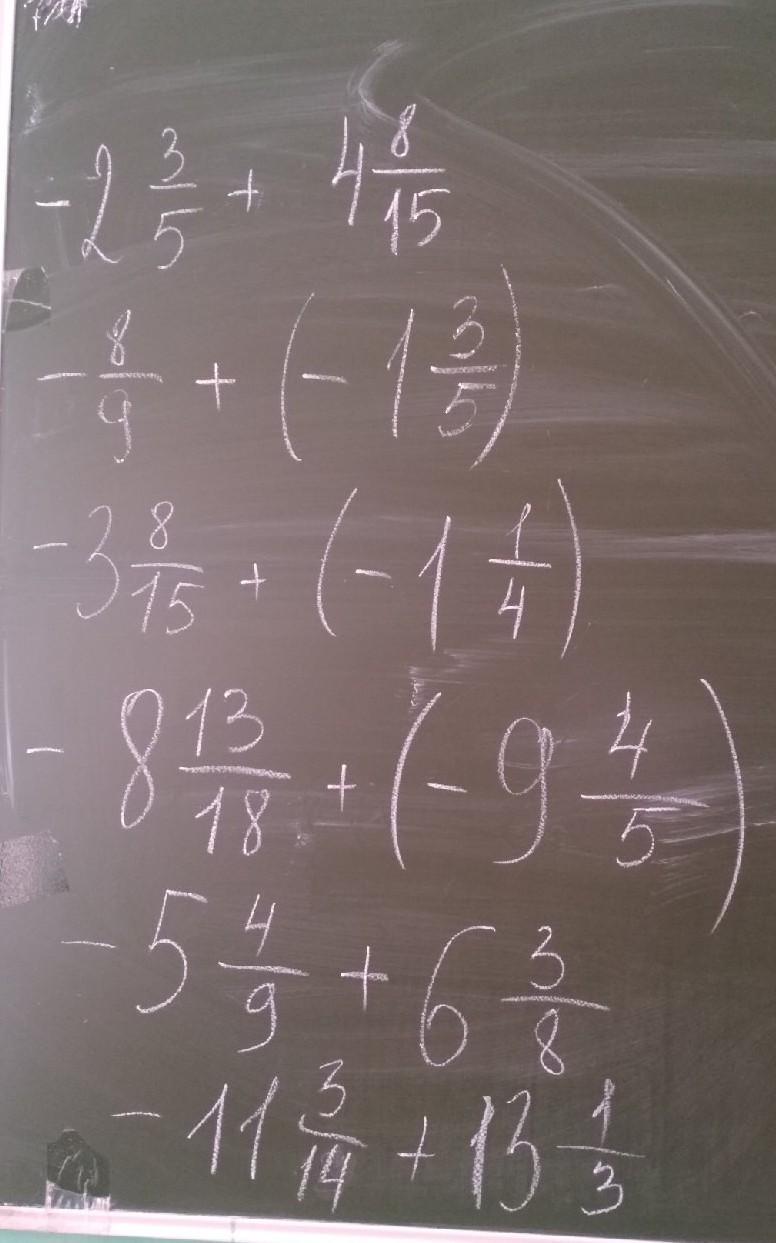 -2 3/5 + 4 8/15
- 8/9 + (-1 3/5)
-3 8/15 + (-1 1/4)
-8 13/18 + (-9 4/5)
-5 4/9 + 6 3/8
-11 3/14 + 13 1/3